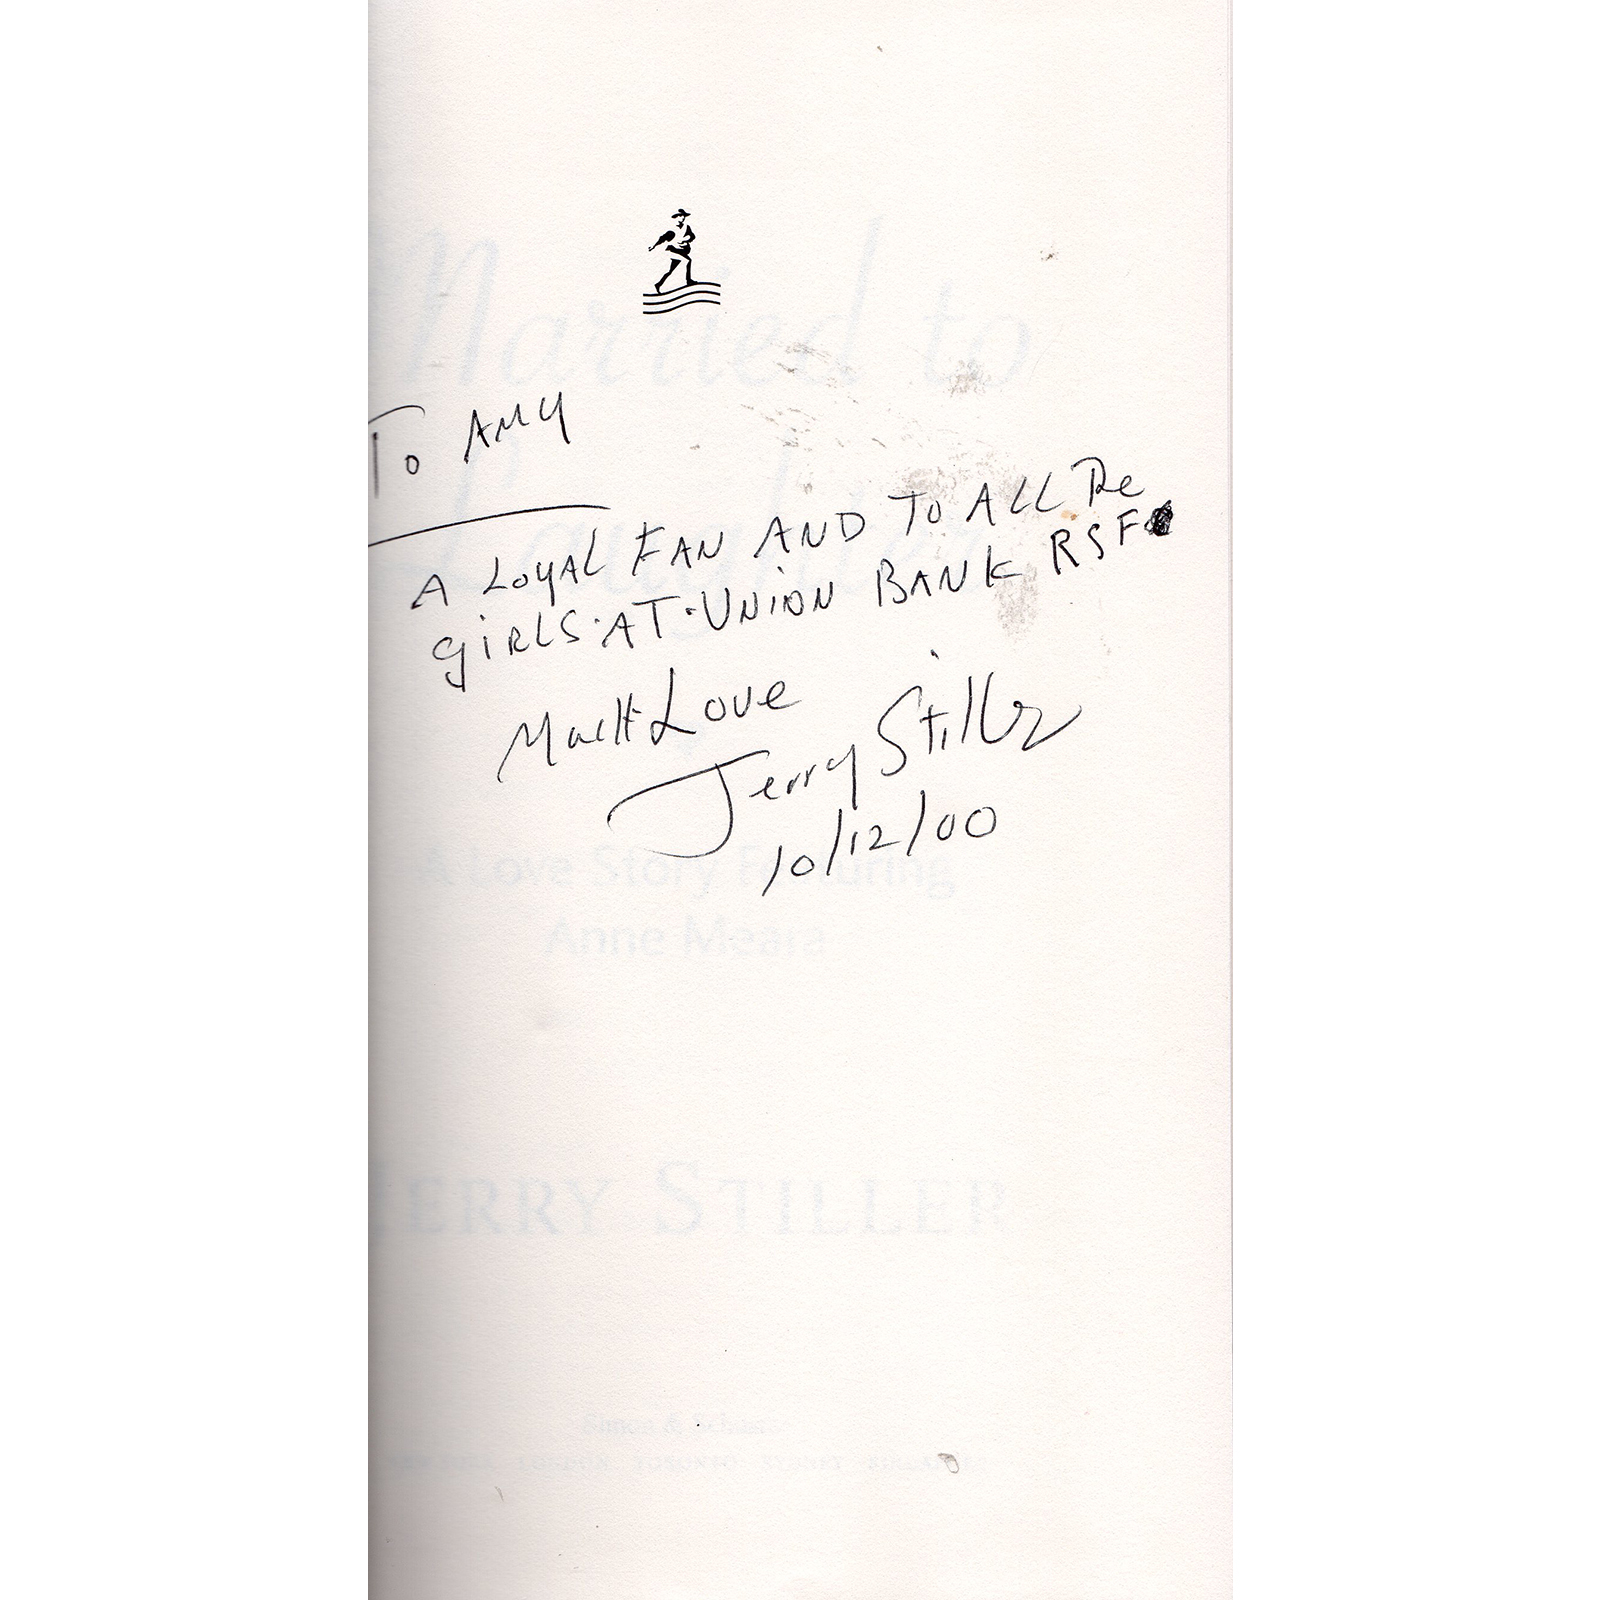 Married to
To Amy
Laughter
A LOYAL FAN AND TO ALL The
GiRLS·AT·UNION BANK RSF
Much Love
Jerry Stiller
10/12/00
A Love Story Featuring
Anne Meara
JERRY STILLER
Simon & Schuster
LONDON TORONTO SYDNEY SINGAPORE